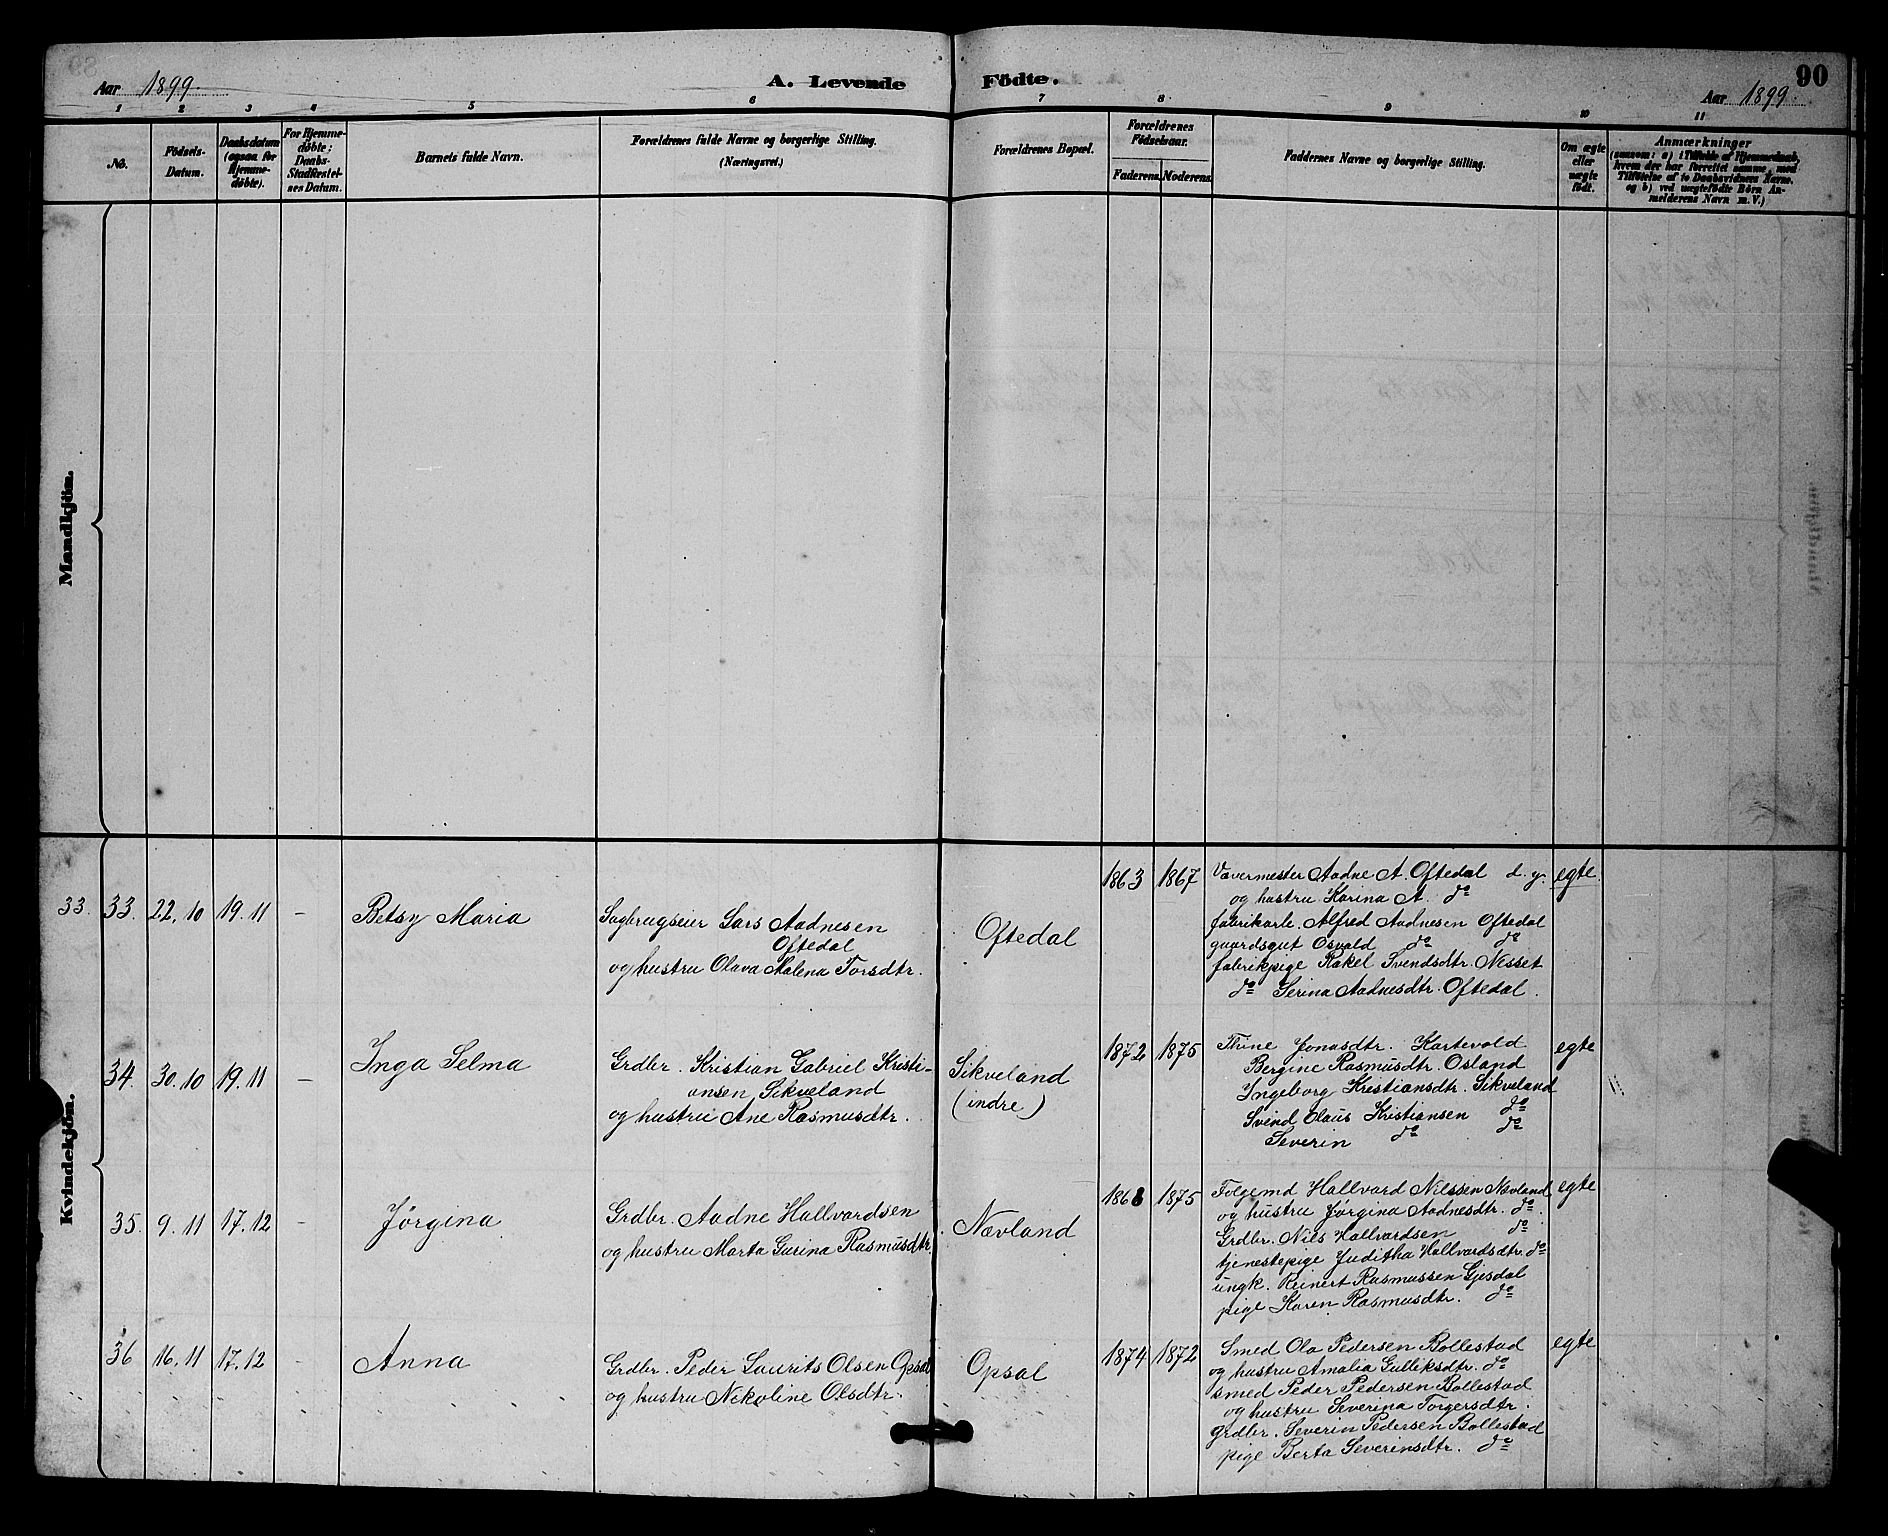 Aar 1899.
A. Levende Födte.
90
Aar 1899.
1 2 3 4 5 6 7 8 9 10 11
No.
Födsels-
Datum.
Daabsdatum
(ogsaa for
Hjemme-
döbte).
For Hjemme-
döbte:
Daabs-
Stadfæstel-
ses Datum.
Barnets fulde Navn.
Forældrenes fulde Navne og borgerlige Stilling.
(Næringsvei.)
Forældrenes Bopæl.
Forældrenes
Födselsaar.
Faderens. Moderens.
Faddernes Navne og borgerlige Stilling.
Om ægte
eller
uægte
födt.
Anmærkninger
(saasom: a) i Tilfælde af Hjemmedaab,
hvem der har forrettet samme, med
Tilföielse af to Daabsvidners Navne.
og b) ved uægtefödte Börn An-
melderens Navn m. V.)
Mandkjön.
Kvindekjön.
33. 33. 22.10 19.11 –
Betsy Maria
Sagbrugseier Lars Aadnesen
Oftedal
og hustru Olava Malena Torsdtr.
Oftedal
1863 1867
Vævermester Aadne A. Oftedal d. y.
og hustru Karina A. do
fabrikarb. Alfred Aadnesen Oftedal
gaardsgut Osvald do do
fabrikpige Rakel Svendsdtr. Nesset
do Serina Aadnesdtr. Oftedal.
egte.
34. 30.10 19.11 –
Inga Selma
Grdbr. Kristian Gabriel Kristi-
ansen Sikveland
og hustru Ane Rasmusdtr.
Sikveland
(indre)
1872 1875
Thine Jonasdtr. Kartevold
Bergine Rasmusdtr. Osland
Ingeborg Krestiansdtr. Sikveland
Svend Olaus Kristiansen do
Severin do do
egte
35. 9.11 17.12 –
Jørgina
Grdbr. Aadne Hallvardsen
og hustru Marta Gurina Rasmusdtr.
Nævland
1868 1875
Folgemd Hallvard Nilssen Nævland
og hustru Jørgina Aadnesdtr. do.
Grdbr. Nils Hallvardsen do
tjenestepige Juditha Hallvardsdtr. do
ungk. Reinert Rasmussen Gjesdal
pige Karen Rasmusdtr. do
egte
36 16.11 17.12 –
Anna
Grdbr. Peder Laurits Olsen Opsal
og hustru Nikoline Olsdtr.
Opsal
1874 1872
Smed Ola Pedersen Bollestad
og hustru Amalia Gulliksdtr. do
smed Peder Pedersen Bollestad
og hustru Severina Torgersdtr.
grdbr. Severin Pedersen Bollestad
pige Berta Severinsdtr. do
egte